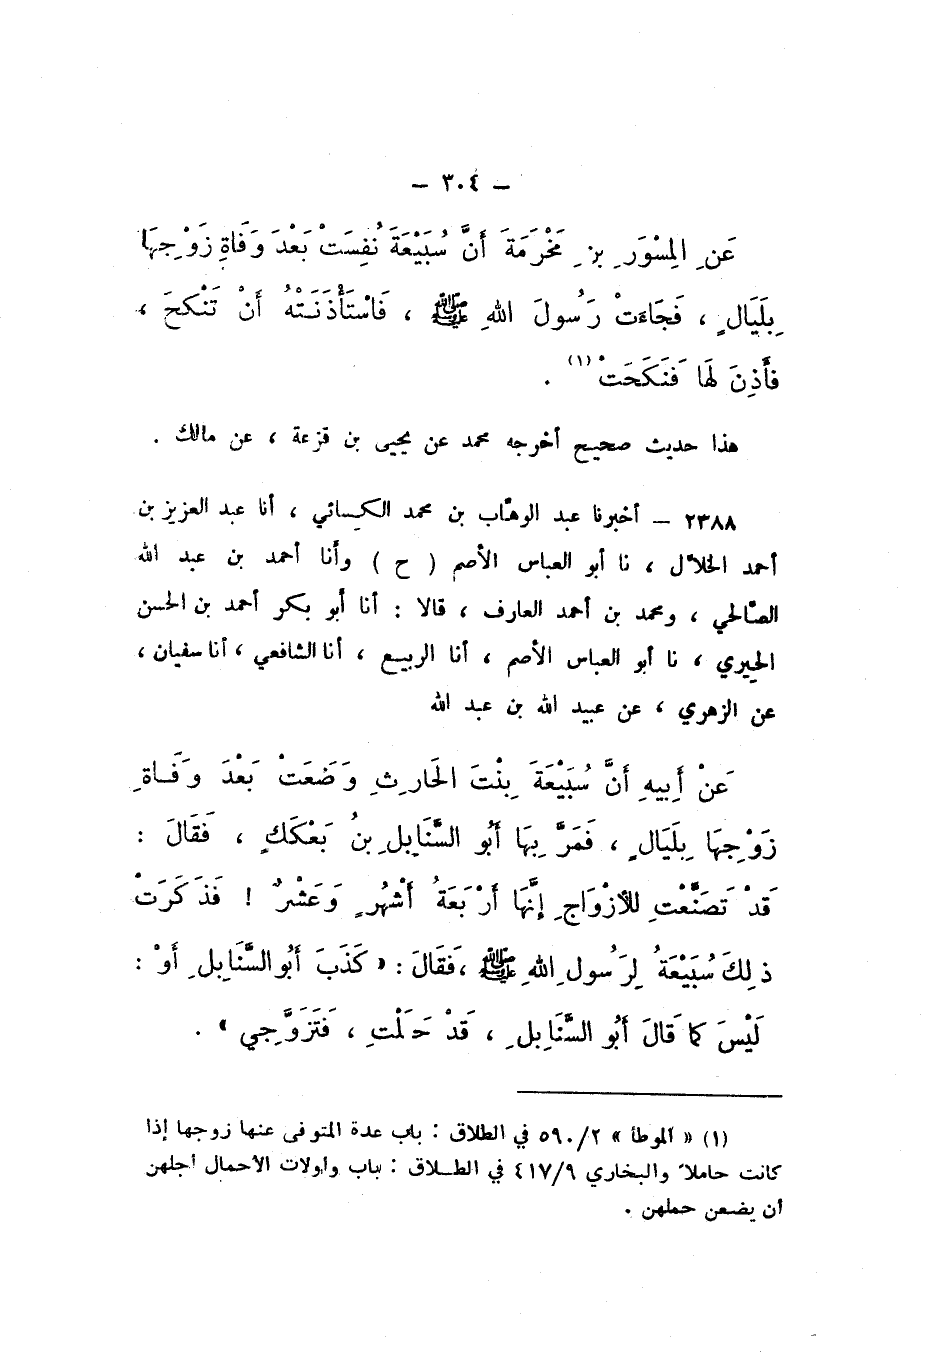 – ٣٠٤ –
عَنِ المِسْوَرِ بنِ مَخْرَمَةَ أَنَّ سُبَيْعَةَ نُفِسَتْ بَعْدَ وَفَاةِ زَوْجِهَا
بِلَيَالٍ ، فَجَاءَتْ رَسُولَ اللهِ ﷺ ، فَاسْتَأْذَنَتْهُ أَنْ تَنْكِحَ ،
فَأَذِنَ لَهَا فَنَكَحَتْ (١) .
هذا حديث صحيح أخرجه محمد عن يحيى بن قزعة ، عن مالك .
٢٣٨٨ – أخبرنا عبد الوهّاب بن محمد الكسائي ، أنا عبد العزيز بن
أحمد الخلاّل ، نا أبو العباس الأصم ( ح ) وأنا أحمد بن عبد الله
الصّالحي ، ومحمد بن أحمد العارف ، قالا : أنا أبو بكر أحمد بن الحسن
الحيري ، نا أبو العباس الأصم ، أنا الربيع ، أنا الشافعي ، أنا سفيان ،
عن الزهري ، عن عبيد الله بن عبد الله
عَنْ أَبِيهِ أَنَّ سُبَيْعَةَ بِنْتَ الحَارِثِ وَضَعَتْ بَعْدَ وَفَاةِ
زَوْجِهَا بِلَيَالٍ ، فَمَرَّ بِهَا أَبُو السَّنَابِلِ بنُ بَعْكَكٍ ، فَقَالَ :
قَدْ تَصَنَّعْتِ للأَزْوَاجِ إِنَّهَا أَرْبَعَةُ أَشْهُرٍ وَعَشْرٌ ! فَذَكَرَتْ
ذلِكَ سُبَيْعَةُ لِرَسُولِ اللهِ ﷺ ، فَقَالَ : « كَذَبَ أَبُو السَّنَابِلِ أَوْ :
لَيْسَ كَمَا قَالَ أَبُو السَّنَابِلِ ، قَدْ حَلَلْتِ ، فَتَزَوَّجِي » .
(١) « الموطأ » ٥٩٠/٢ في الطلاق : باب عدة المتوفى عنها زوجها إذا
كانت حاملاً والبخاري ٤١٧/٩ في الطلاق : باب وأولات الأحمال أجلهن
أن يضعن حملهن .